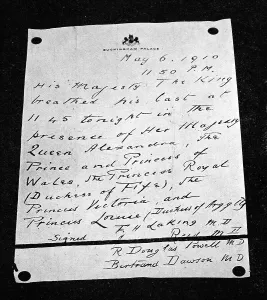 BUCKINGHAM PALACE
May 6, 1910
11 50 P.M.
His Majesty The King
breathed his last at
11 45 tonight in the
presence of Her Majesty
Queen Alexandra, the
Prince and Princess of
Wales, the Princess Royal
(Duchess of Fife), the
Princess Victoria, and
Princess Louise (Duchess of Argyll)
Signed F H Laking M D
J Reid M D
R Douglas Powell M D
Bertrand Dawson M D